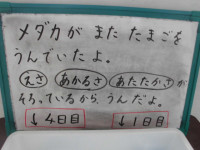 メダカが また たまごを
うんでいたよ。
えさ あかるさ あたたかさ が
そろっているから うんだよ。
↓4日目 ↓1日目